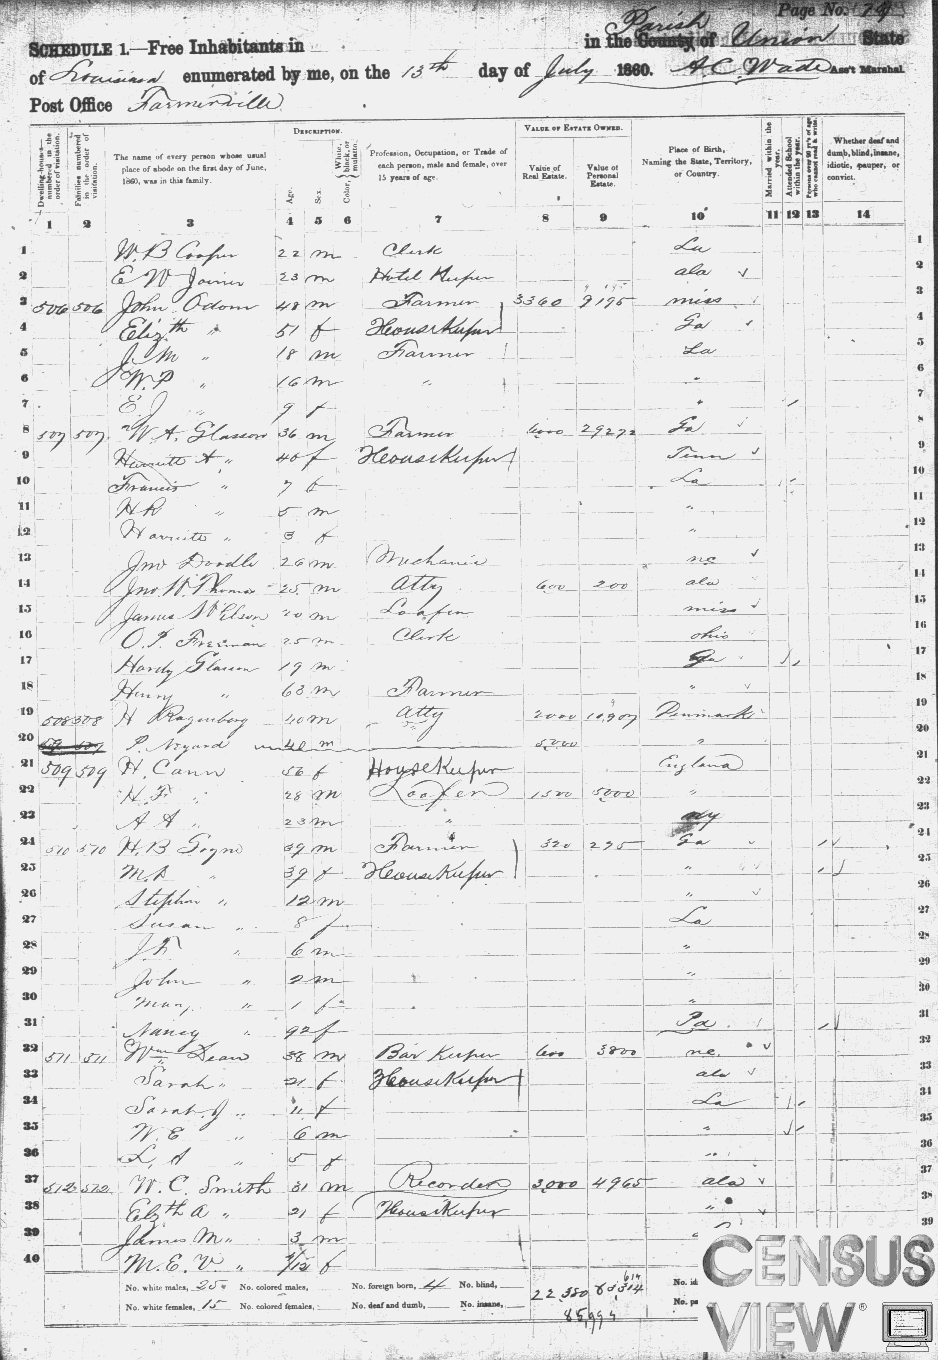 Page No. 79
SCHEDULE 1.—Free Inhabitants in in the County Parish of Union State
of Louisiana enumerated by me, on the 13th day of July 1860. A. C. Wade Ass't Marshal.
Post Office Farmerville
DESCRIPTION. VALUE OF ESTATE OWNED.
Dwelling-houses numbered in the order of visitation. Families numbered in the order of visitation. The name of every person whose usual place of abode on the first day of June, 1860, was in this family. Age. Sex. Color, White, black, or mulatto. Profession, Occupation, or Trade of each person, male and female, over 15 years of age. Value of Real Estate. Value of Personal Estate. Place of Birth, Naming the State, Territory, or Country. Married within the year. Attended School within the year. Persons over 20 y'rs of age who cannot read & write. Whether deaf and dumb, blind, insane, idiotic, pauper, or convict.
1 2 3 4 5 6 7 8 9 10 11 12 13 14
1 W. B Cooper 22 m Clerk La 1
2 E W Joiner 23 m Hotel Keeper ala 2
3 506 506 John Odom 48 m Farmer 3360 9195 miss 3
4 Elizth " 51 f HouseKeeper Ga 4
5 J. M " 18 m Farmer La 5
6 W. P " 16 m " " 6
7 E J " 9 f " 7
8 507 507 W. A. Glasson 36 m Farmer 6000 29272 Ga 8
9 Harriett A " 40 f HouseKeeper Tenn 9
10 Francis " 7 f La 10
11 H R " 5 m " 11
12 Harriette " 3 f " 12
13 Jno Doodle 26 m Mechanic nc 13
14 Jno. W. Thomas 25 m Atty 600 200 ala 14
15 James 20 m Loafer miss 15
16 O. P. Freeman 25 m Clerk ohio 16
17 Hardy Glasson 19 m Ga 17
18 Henry " 63 m Farmer " 18
19 508 508 H Ragenberg 40 m Atty 2000 10,907 Denmark 19
20 P. m 5000 " 20
21 509 509 H. Cann 56 f HouseKeeper England 21
22 H. F " 28 m Loafer 1500 5000 " 22
23 A A " 23 m " ny 23
24 510 510 H. B 39 m Farmer 320 295 Ga 24
25 " 39 f HouseKeeper " 25
26 Stephen " 12 m " 26
27 Susan " 8 f La 27
28 J. F. " 6 m " 28
29 John " 2 m " 29
30 Mary " 1 f " 30
31 Nancy " 92 f 31
32 511 511 Wm Dean 38 m Bar Keeper 600 3800 nc 32
33 Sarah " 21 f HouseKeeper ala 33
34 Sarah J " 11 f La 34
35 W. E " 6 m " 35
36 L, A " 5 f " 36
37 512 512 W. C. Smith 31 m Recorder 3000 4965 ala 37
38 Elzth A " 21 f HouseKeeper " 38
39 James M " 3 m 39
40 M. E. V " f
No. white males, 25 No. colored males, No. foreign born, 4 No. blind,
No. white females, 15 No. colored females, No. deaf and dumb, No. insane,
22380
85,994
CENSUS
VIEW®